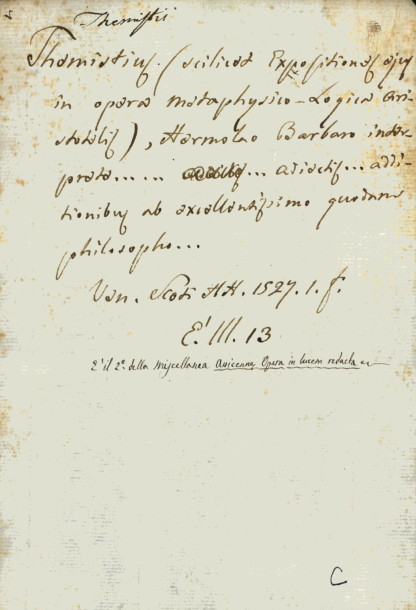 Themistii
Themistius. (scilicet Expositiones ejus
in opera metaphysico-Logica Ari
stotelis), Hermolao Barbaro inter-
prete... ... ... adiectis... addi-
tionibus ab excellentissimo quodam
philosopho...
Ven. Scoti HH. 1527. 1. f.
E! III. 13
E' il 2º. della Miscellanea Avicennae Opera in lucem redacta
C